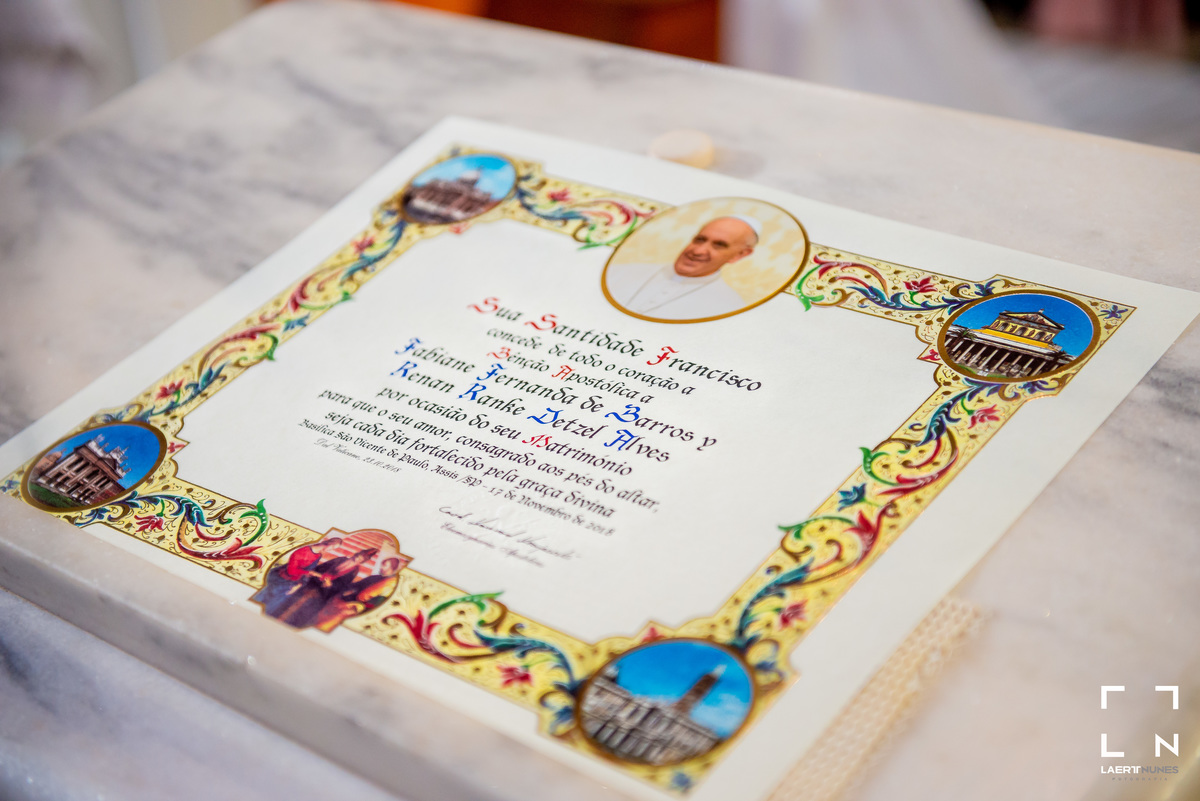 Sua Santidade Francisco
concede de todo o coração a
Bênção Apostólica a
Fabiane Fernanda de Barros y
Renan Ranke Detzel Alves
por ocasião do seu Matrimónio
para que o seu amor, consagrado aos pés do altar,
seja cada dia fortalecido pela graça divina
Basílica São Vicente de Paulo, Assis /SP - 17 de Novembro de 2018
L N
LAERT NUNES